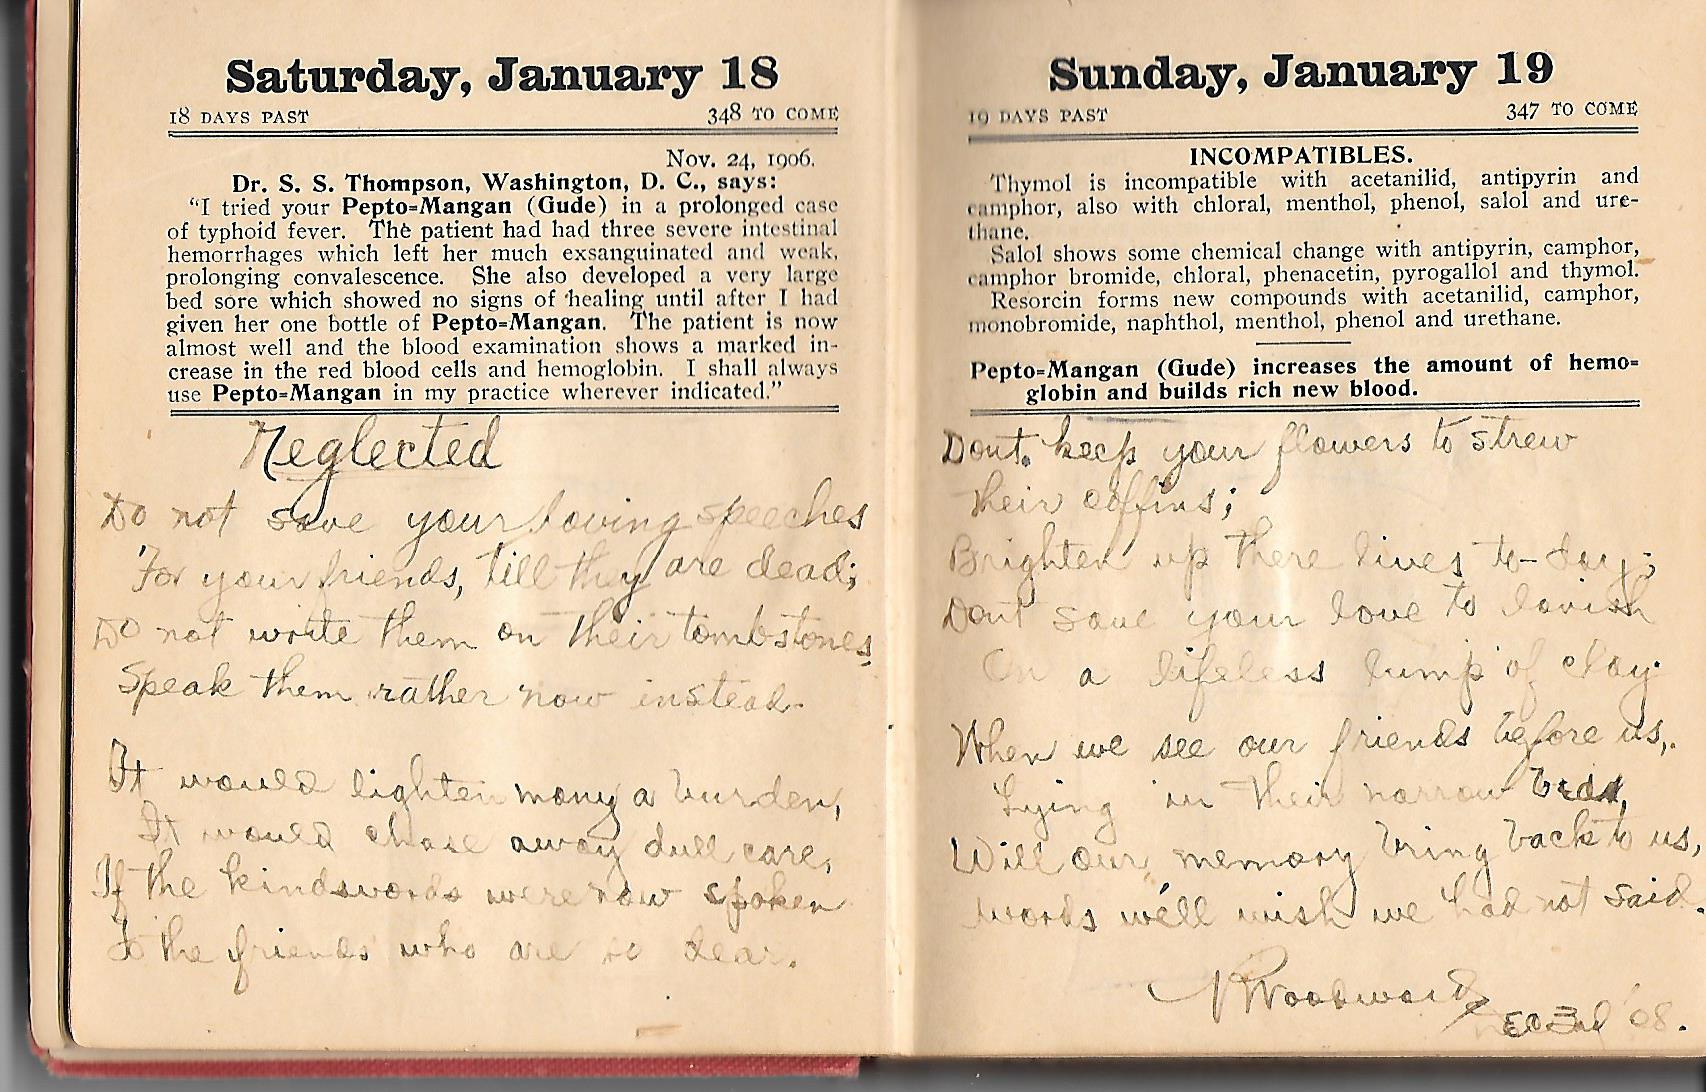 Saturday, January 18
18 DAYS PAST 348 TO COME
Nov. 24, 1906.
Dr. S. S. Thompson, Washington, D. C., says:
“I tried your Pepto=Mangan (Gude) in a prolonged case
of typhoid fever. The patient had had three severe intestinal
hemorrhages which left her much exsanguinated and weak,
prolonging convalescence. She also developed a very large
bed sore which showed no signs of healing until after I had
given her one bottle of Pepto=Mangan. The patient is now
almost well and the blood examination shows a marked in-
crease in the red blood cells and hemoglobin. I shall always
use Pepto=Mangan in my practice wherever indicated.”
Neglected
Do not save your loving speeches
For your friends, till they are dead;
Do not write them on their tombstones,
Speak them rather now instead.
It would lighten many a burden,
It would chase away dull care,
If the kindswords were now spoken
To the friends who are so dear.
Sunday, January 19
19 DAYS PAST 347 TO COME
INCOMPATIBLES.
Thymol is incompatible with acetanilid, antipyrin and
camphor, also with chloral, menthol, phenol, salol and ure-
thane.
Salol shows some chemical change with antipyrin, camphor,
camphor bromide, chloral, phenacetin, pyrogallol and thymol.
Resorcin forms new compounds with acetanilid, camphor,
monobromide, naphthol, menthol, phenol and urethane.
Pepto=Mangan (Gude) increases the amount of hemo=
globin and builds rich new blood.
Dont. keep your flowers to strew
their coffins;
Brighten up there lives to-day;
Dont save your love to lavish
On a lifeless lump of clay.
When we see our friends before us,
Lying in their narrow beds,
Will our memory bring back to us,
words we'll wish we had not said.
Woodward
Dec 3rd '08.